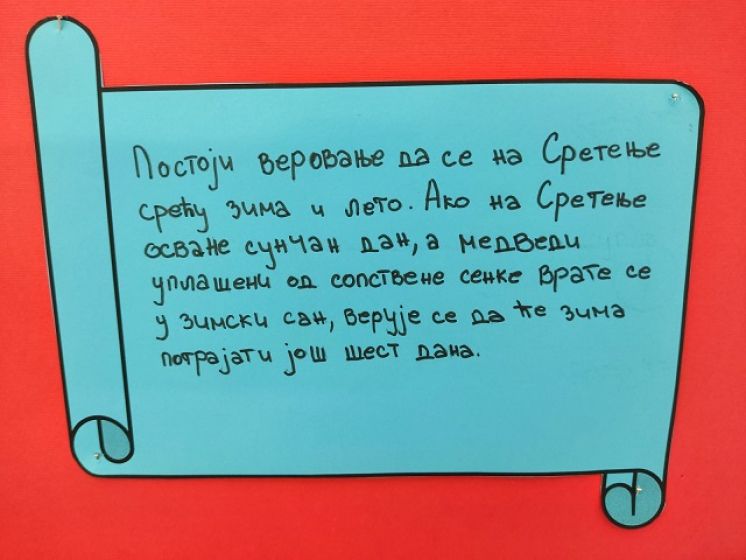 Постоји веровање да се на Сретење
срећу зима и лето. Ако на Сретење
осване сунчан дан, а медведи
уплашени од сопствене сенке врате се
у зимски сан, верује се да ће зима
потрајати још шест дана.